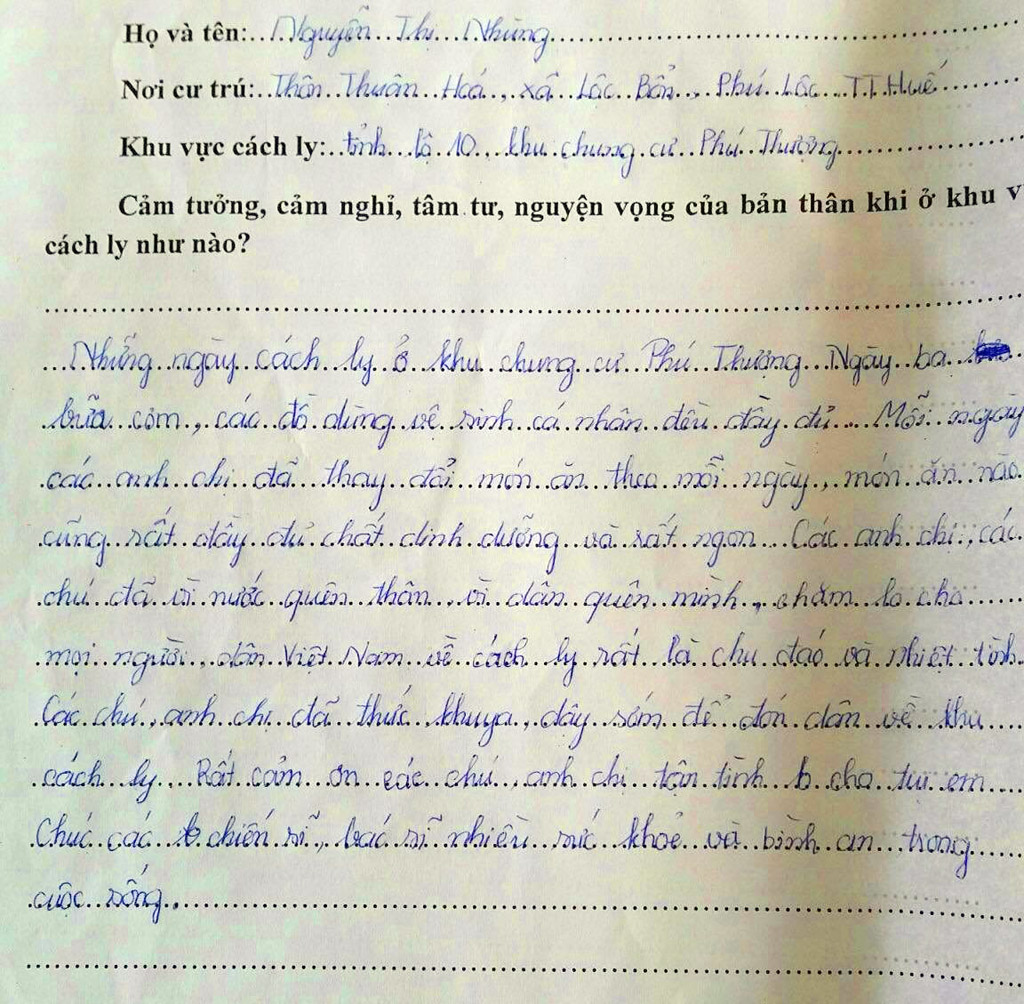 Họ và tên: Nguyễn Thị Nhung
Nơi cư trú: Thôn Thuận Hoá, xã Lộc Bổn, Phú Lộc TT Huế
Khu vực cách ly: tỉnh lộ 10, khu chung cư Phú Thượng
Cảm tưởng, cảm nghỉ, tâm tư, nguyện vọng của bản thân khi ở khu v
cách ly như nào?
Những ngày cách ly ở khu chung cư Phú Thượng. Ngày ba
bữa cơm, các đồ dùng vệ sinh cá nhân đều đầy đủ. Mỗi ngày
các anh chị đã thay đổi món ăn theo mỗi ngày, món ăn nào
cũng rất đầy đủ chất dinh dưỡng và rất ngon. Các anh chị, các
chú đã vì nước quên thân, vì dân quên mình, chăm lo cho
mọi người dân Việt Nam về cách ly rất là chu đáo và nhiệt tình.
Các chú, anh chị đã thức khuya, dậy sớm để đón dân về khu
cách ly. Rất cảm ơn các chú, anh chị tận tình cho tụi em
Chúc các chiến sĩ, bác sĩ nhiều sức khoẻ và bình an trong
cuộc sống.